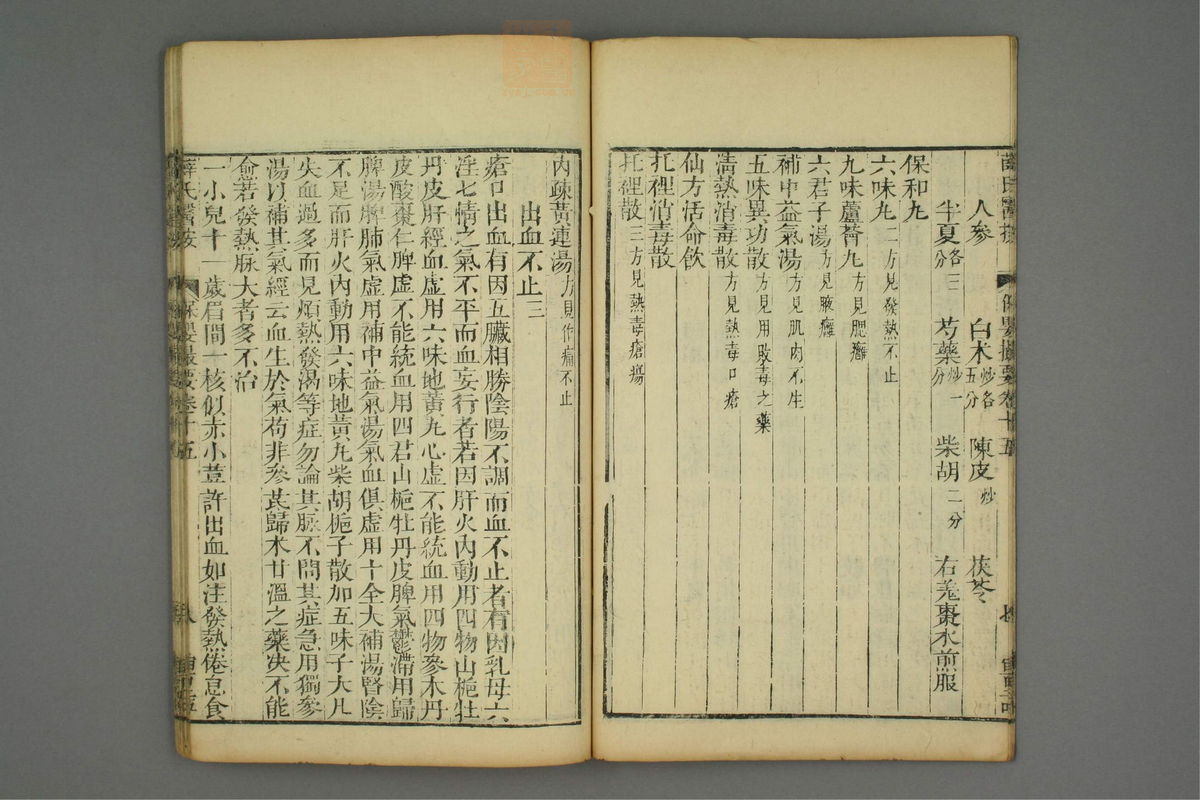 人參 白朮炒各五分 陳皮炒 茯苓
半夏各三分 芍藥炒一分 柴胡二分 右羗棗水煎服
保和丸
六味丸二方見發熱不止
九味蘆薈丸方見腮癰
六君子湯方見腋癰
補中益氣湯方見肌肉不生
五味異功散方見用敗毒之藥
清熱消毒散方見熱毒口瘡
仙方活命飲
托裡消毒散
托裡散三方見熱毒瘡瘍
內疎黃連湯方見作痛不止
出血不止三
瘡口出血有因五臟相勝陰陽不調而血不止者有因乳母六
淫七情之氣不平而血妄行者若因肝火內動用四物山梔牡
丹皮肝經血虛用六味地黃丸心虛不能統血用四物參朮丹
皮酸棗仁脾虛不能統血用四君山梔牡丹皮脾氣鬱滯用歸
脾湯脾肺氣虛用補中益氣湯氣血俱虛用十全大補湯腎陰
不足而肝火內動用六味地黃丸柴胡梔子散加五味子大凡
失血過多而見煩熱發渴等症勿論其脉不問其症急用獨參
湯以補其氣經云血生於氣苟非參芪歸朮甘溫之藥決不能
愈若發熱脉大者多不治
一小兒十一歲眉間一核似赤小荳許出血如注發熱倦怠食
薛氏醫按 保嬰撮要卷十五 八